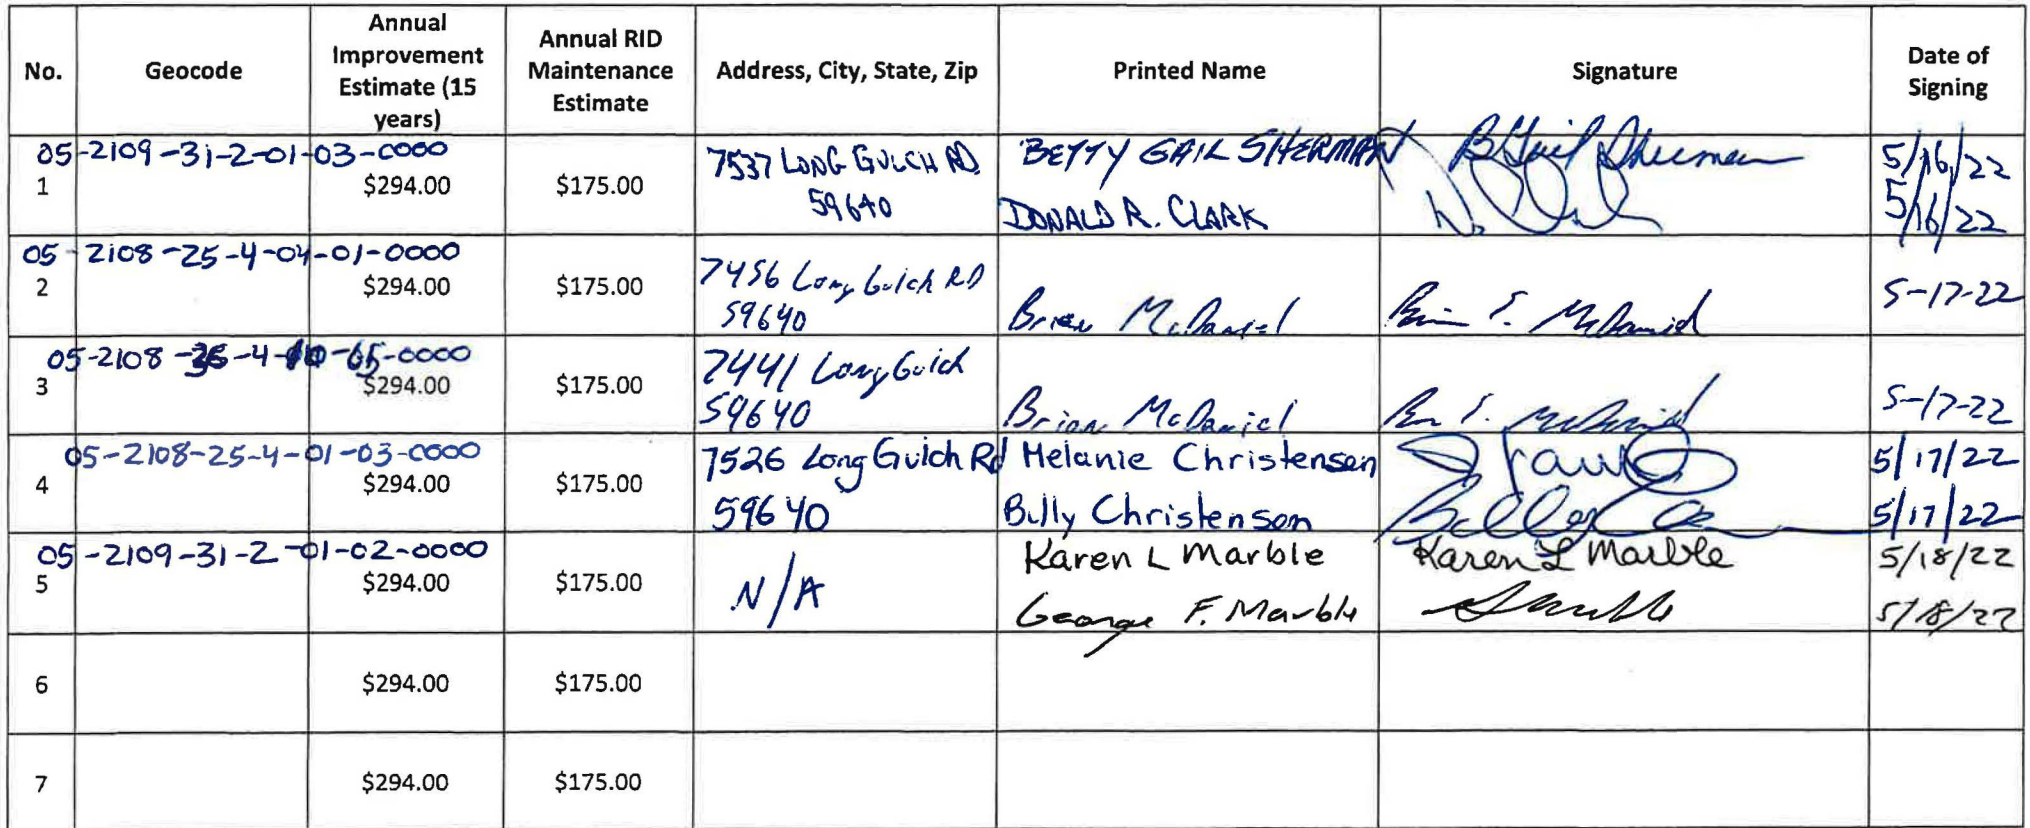 No. Geocode Annual Improvement Estimate (15 years) Annual RID Maintenance Estimate Address, City, State, Zip Printed Name Signature Date of Signing
05-2109-31-2-01-03-0000
1 $294.00 $175.00 7537 LONG GULCH RD. BETTY GAIL SHERMAN B Gail Sherman 5/16/22
59640 DONALD R. CLARK 5/16/22
05-2108-25-4-04-01-0000
2 $294.00 $175.00 7456 Long Gulch RD
59640 Brian McDaniel Brian E. McDaniel 5-17-22
05-2108-36-4-10-05-0000
3 $294.00 $175.00 7441 Long Gulch
59640 Brian McDaniel Brian E. McDaniel 5-17-22
05-2108-25-4-01-03-0000
4 $294.00 $175.00 7526 Long Gulch Rd Melanie Christensen 5/17/22
59640 Billy Christensen 5/17/22
05-2109-31-2-01-02-0000
5 $294.00 $175.00 N/A Karen L Marble Karen L Marble 5/18/22
George F. Marble 5/18/22
6 $294.00 $175.00
7 $294.00 $175.00